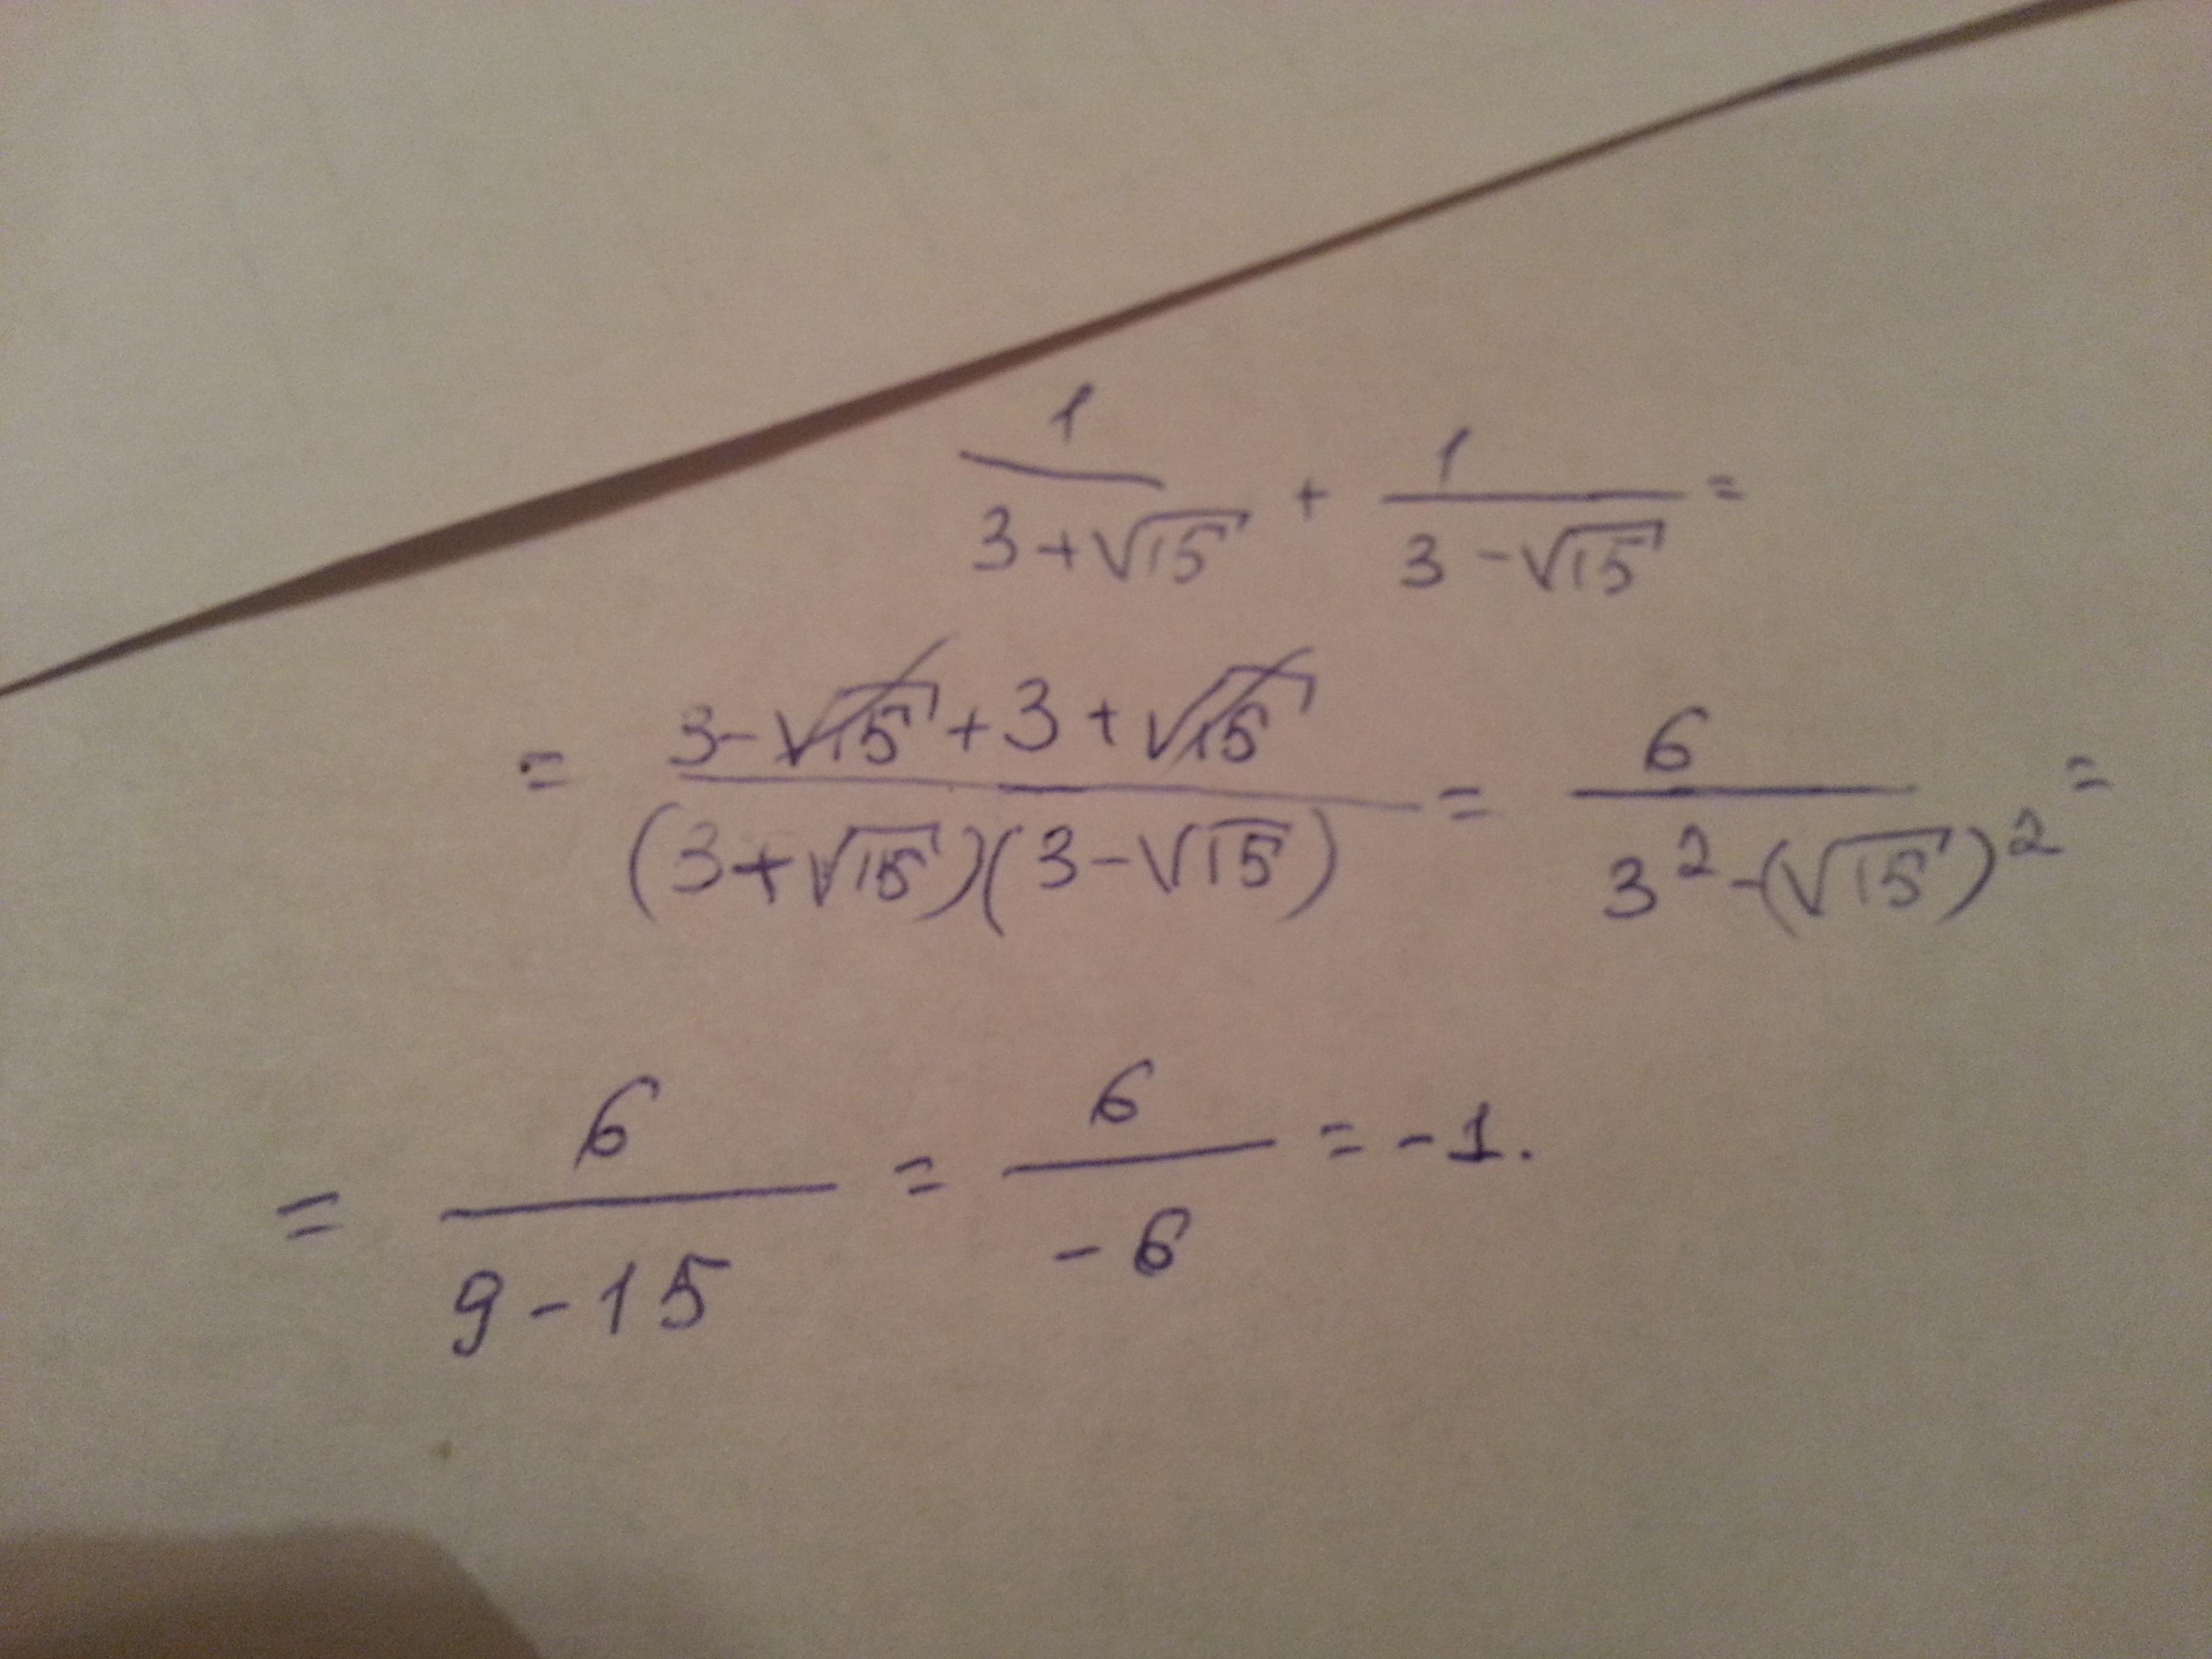 1/(3+√15) + 1/(3-√15) =
= (3-√15+3+√15)/((3+√15)(3-√15)) = 6/(3²-(√15)²) =
= 6/(9-15) = 6/(-6) = -1.